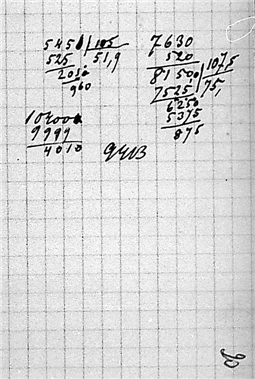 5450 | 105
525 | 51,9
2050
960
7630
520
81500 | 1075
7525 | 75,
6250
5375
875
104000
9999
4010